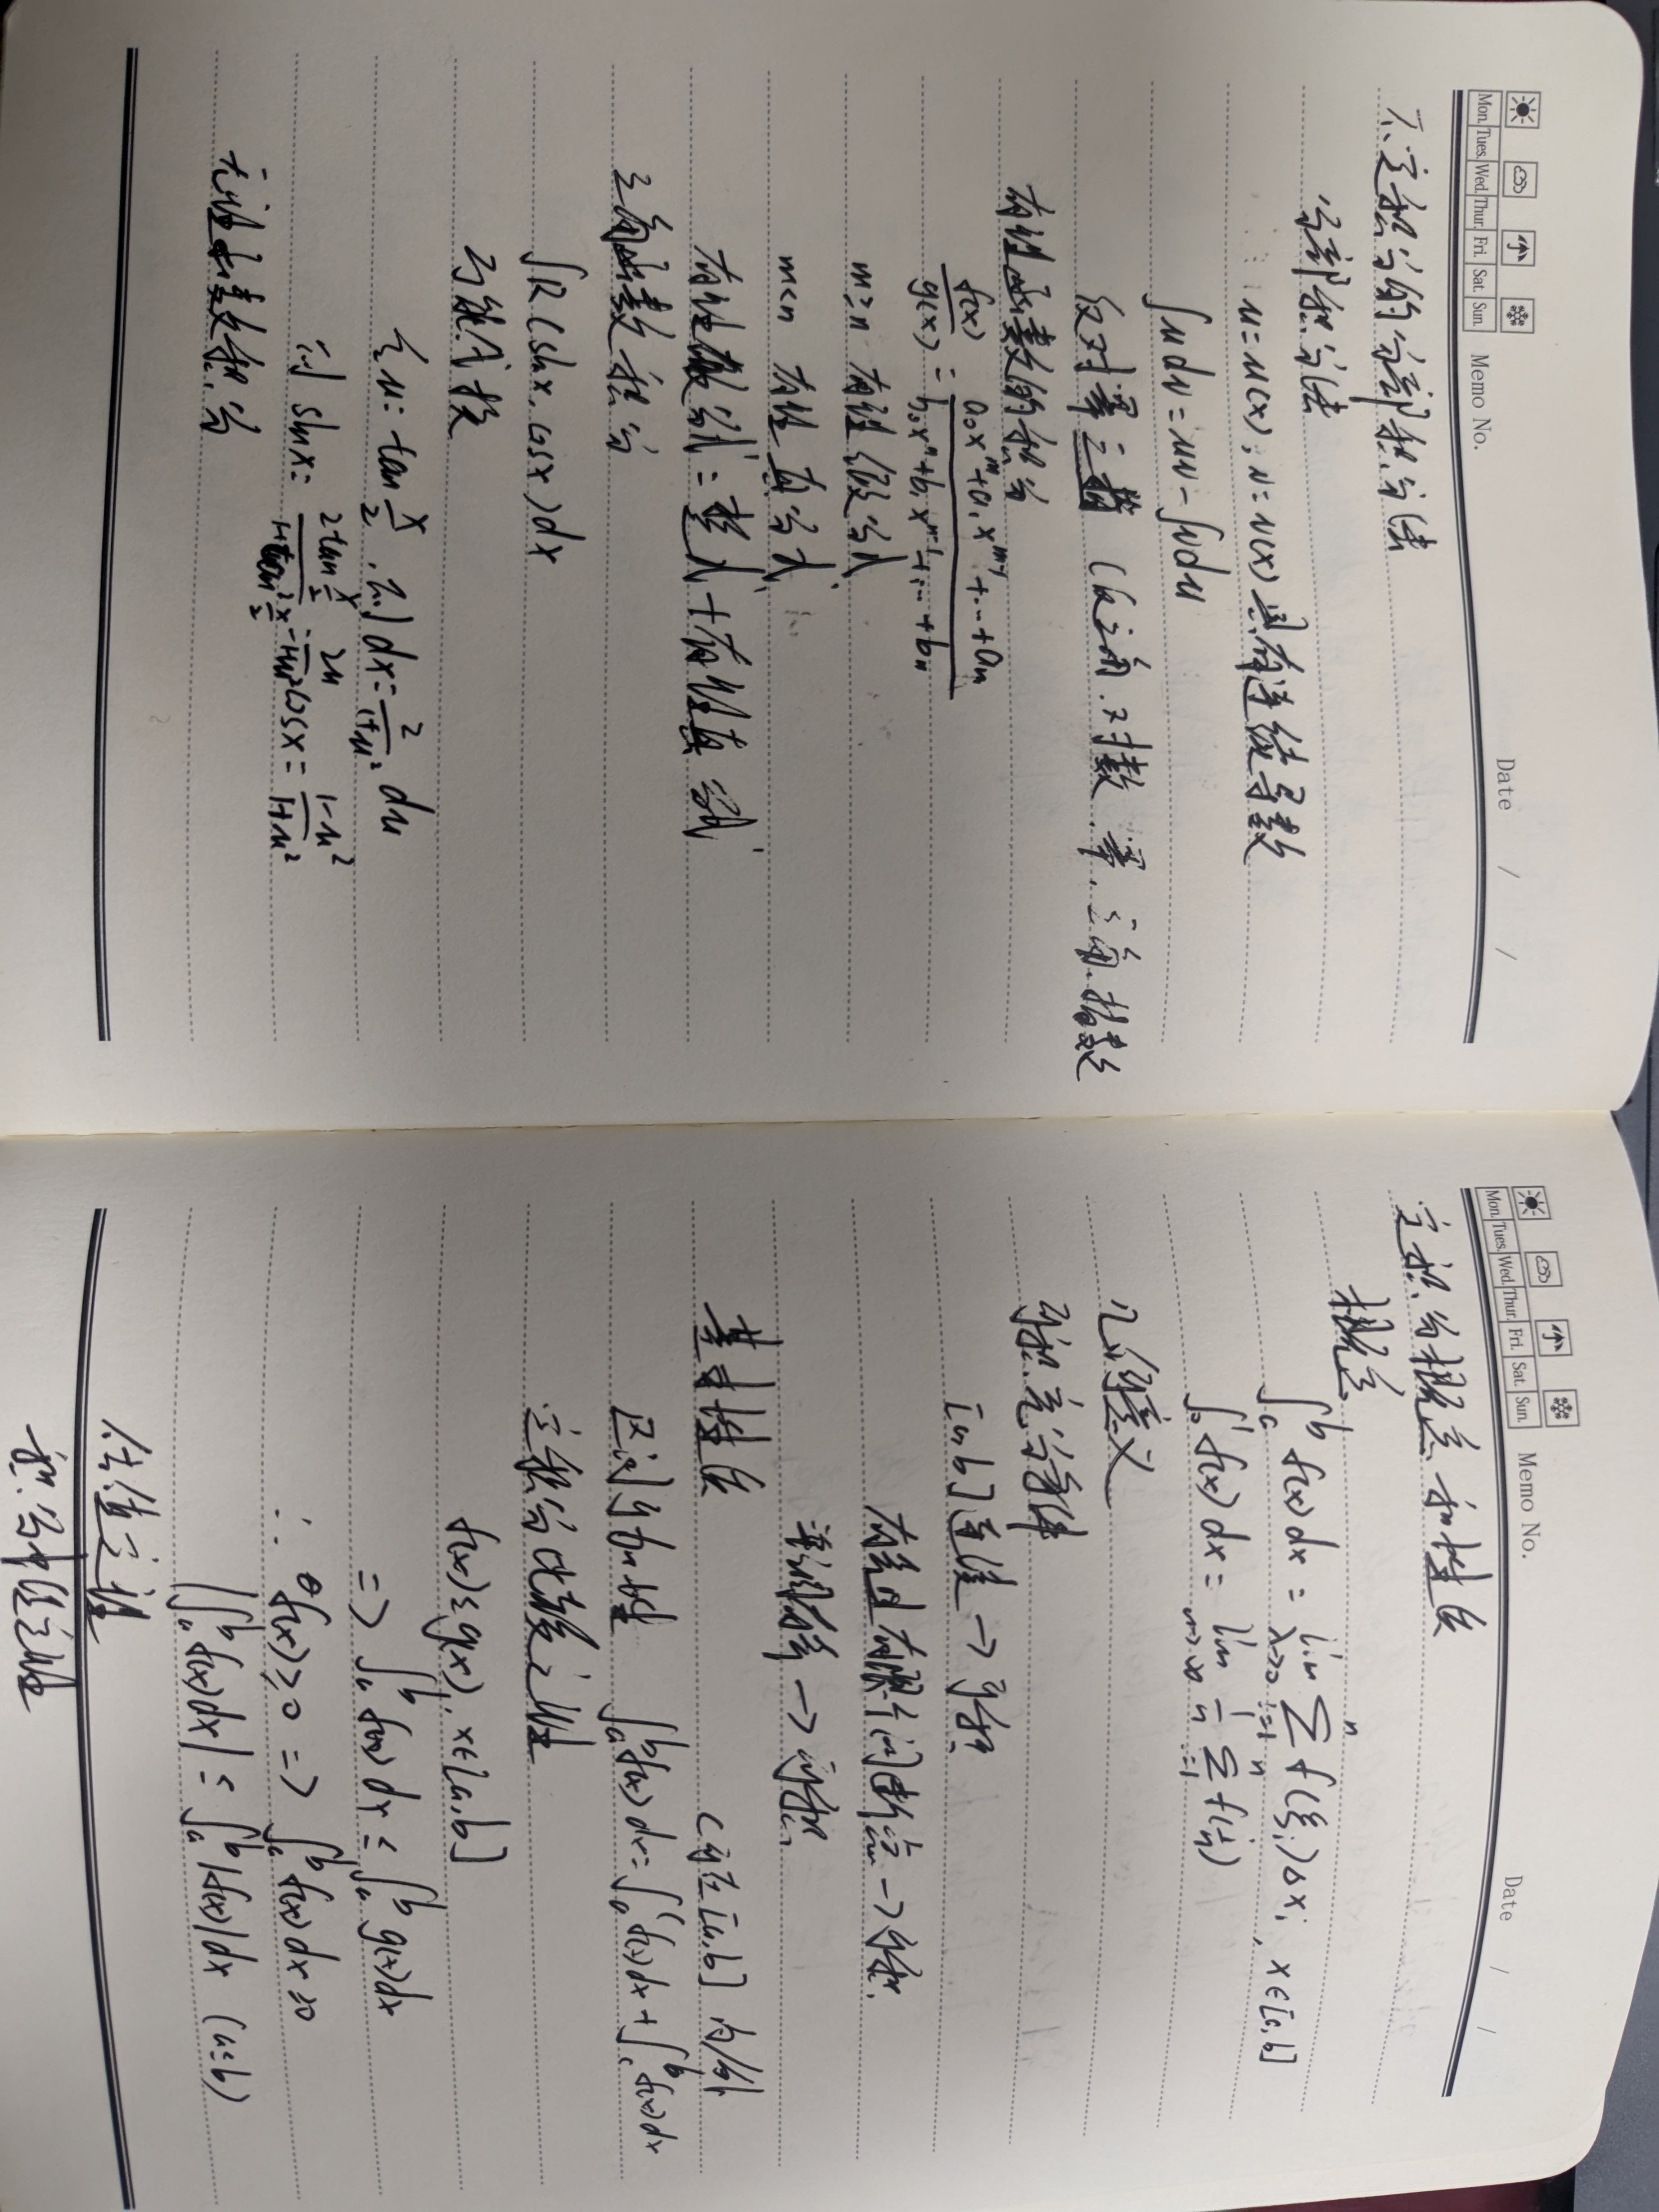 Mon. Tues. Wed. Thur. Fri. Sat. Sun.
Memo No.
Date / /
不定积分的分部积分法
分部积分法
u=u(x), v=v(x)具有连续导数
∫udv=uv-∫vdu
反对幂三指 (反三角.对数.幂.三角.指数
有理函数的积分
f(x)/g(x) = (a₀xᵐ+a₁xᵐ⁻¹+...+aₘ)/(b₀xⁿ+b₁xⁿ⁻¹+...+bₙ)
m≥n 有理假分式
m<n 有理真分式
有理假分式=整式+有理真分式
三角函数积分
∫R(sinx,cosx)dx
万能代换
令u=tan x/2, 则dx=2/(1+u²) du
则 sinx= (2tan x/2)/(1+tan² x/2) = 2u/(1+u²) cosx= (1-u²)/(1+u²)
无理函数积分
Mon. Tues. Wed. Thur. Fri. Sat. Sun.
Memo No.
Date / /
定积分概念和性质
概念
∫ₐᵇ f(x)dx = lim λ→0 Σᵢ₌₁ⁿ f(ξᵢ)Δxᵢ, x∈[a,b]
∫₀¹ f(x)dx = lim n→∞ 1/n Σᵢ₌₁ⁿ f(i/n)
几何意义
可积充分条件
[a,b]连续→可积
有界且有限个间断点→可积
单调有界→可积
基本性质
区间可加性 ∫ₐᵇf(x)dx=∫ₐᶜf(x)dx+∫꜀ᵇf(x)dx
定积分比较定理
f(x)≤g(x), x∈[a,b]
=> ∫ₐᵇ f(x)dx ≤ ∫ₐᵇ g(x)dx
∴ f(x)≥0 => ∫ₐᵇ f(x)dx≥0
|∫ₐᵇf(x)dx| ≤ ∫ₐᵇ|f(x)|dx (a<b)
估值定理
积分中值定理